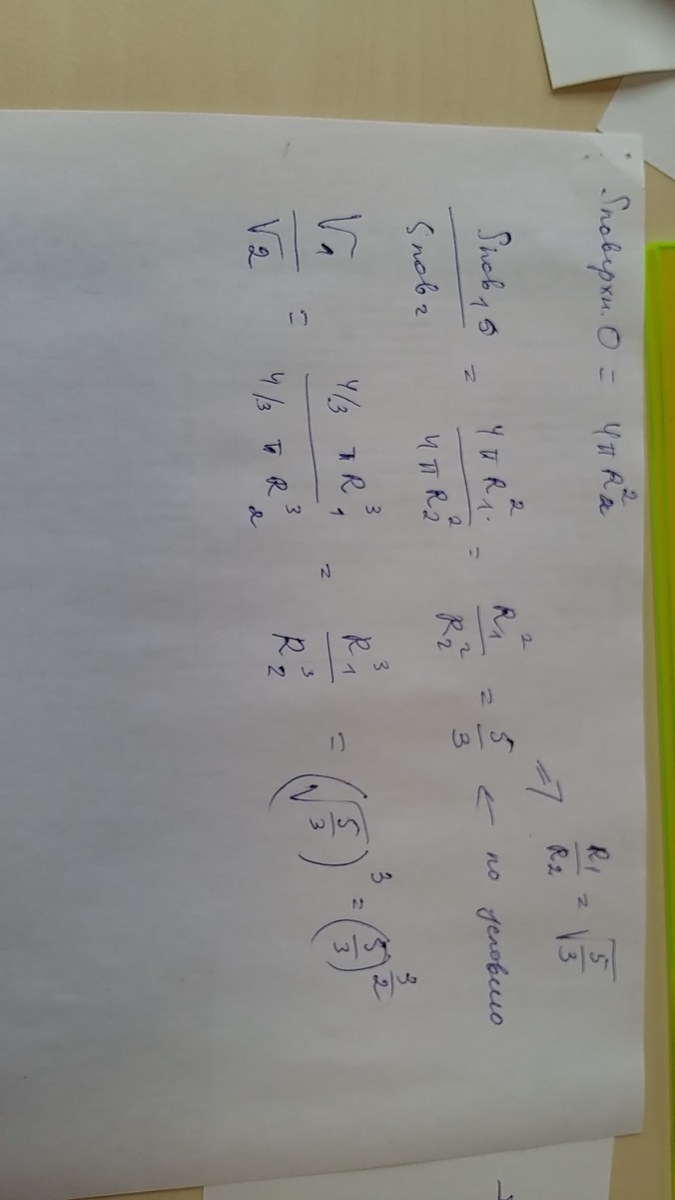 Sповерхн. О = 4πR²
Sпов1 / Sпов2 = 4πR₁² / 4πR₂² = R₁² / R₂² = 5/3 ← по условию
=> R1/R2 = √(5/3)
V1 / V2 = 4/3 πR₁³ / 4/3 πR₂³ = R₁³ / R₂³ = (√(5/3))³ = (5/3)^(3/2)